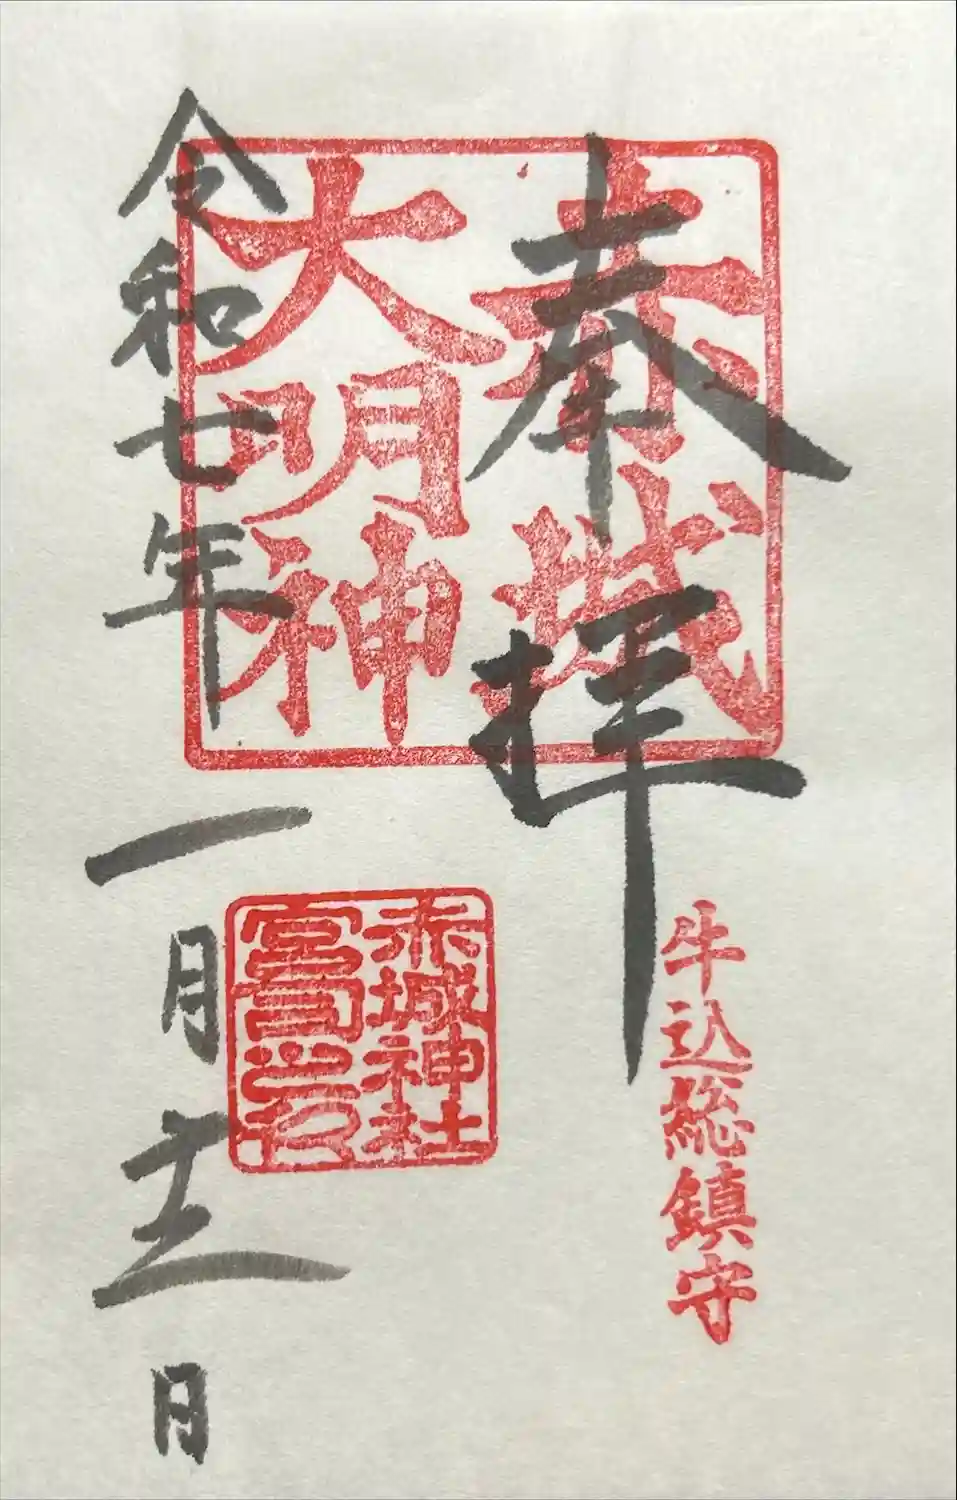 牛込総鎮守
奉拝
赤城
大明神
赤城神社
令和七年
一月
日